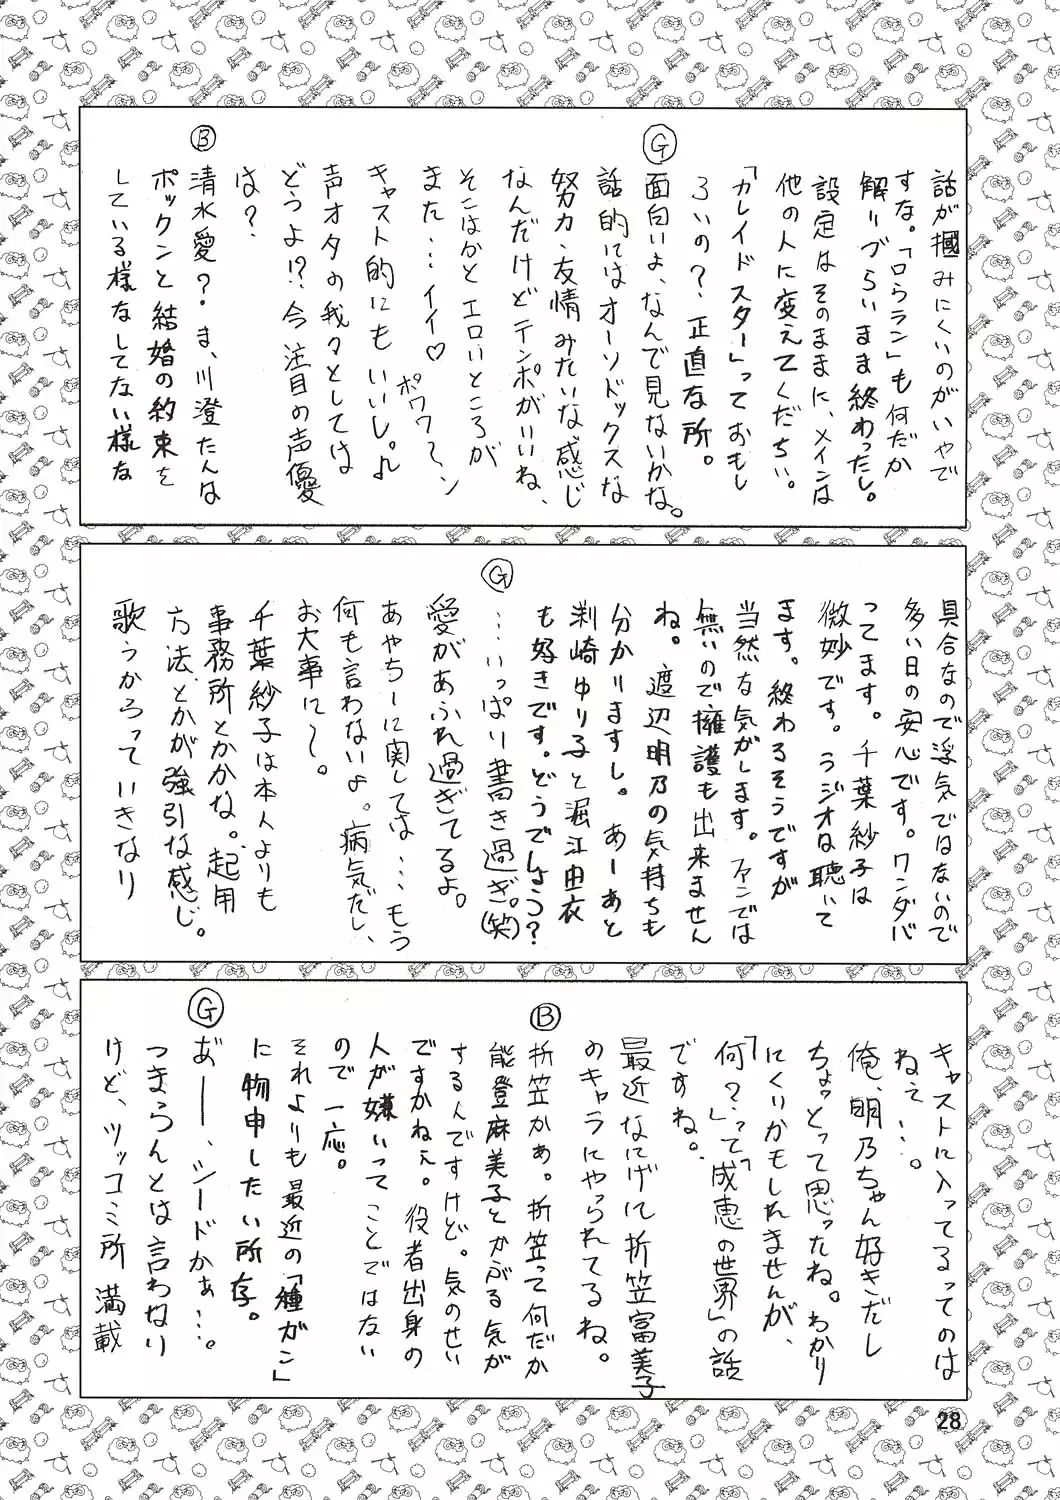 話が掴みにくいのがいやで
すな。「ロラン」も何だか
解りづらいまま終わったし。
設定はそのままに、メインは
他の人に変えてくだちい。
「カレイドスター」っておもし
ろいの？、正直な所。
Ⓖ
面白いよ、なんで見ないかな。
話的にはオーソドックスな
努力、友情みたいな感じ
なんだけどテンポがいいね、
そこはかとエロいところが
また…イイ♡ポワワ～ン
キャスト的にもいいし。♪
声オタの我々としては
どうよ!?今注目の声優
は？
Ⓑ
清水愛？ま、川澄たんは
ボックンと結婚の約束を
している様なしてない様な
具合なので浮気ではないので
多い日の安心です。ワンダバ
ってます。千葉紗子は
微妙です。ラジオは聴いて
ます。終わるそうですが
当然な気がします。ファンでは
無いので擁護も出来ません
ね。渡辺明乃の気持ちも
分かりますし。あーあと
刹崎ゆり子と堀江由衣
も好きです。どうでしょう？
Ⓖ
…いっぱい書き過ぎ。(笑)
愛があふれ過ぎてるよ。
あやちーに関しては…もう
何も言わないよ。病気だし、
お大事に～。
千葉紗子は本人よりも
事務所とかかな。起用
方法とかが強引な感じ。
歌うからっていきなり
キャストに入ってるってのは
ねぇ…。
俺、明乃ちゃん好きだし
ちょっとって思ったね。わかり
にくいかもしれませんが、
「何？」って「成恵の世界」の話
ですね。
最近なにげに折笠富美子
のキャラにやられてるね。
Ⓑ
折笠かぁ。折笠って何だか
能登麻美子とかぶる気が
するんですけど。気のせい
ですかねぇ。役者出身の
人が嫌いってことではない
ので一応。
それよりも最近の「種ガン」
に物申したい所存。
Ⓖ
あ゛ー、シードかぁ…。
つまらんとは言わない
けど、ツッコミ所満載
28